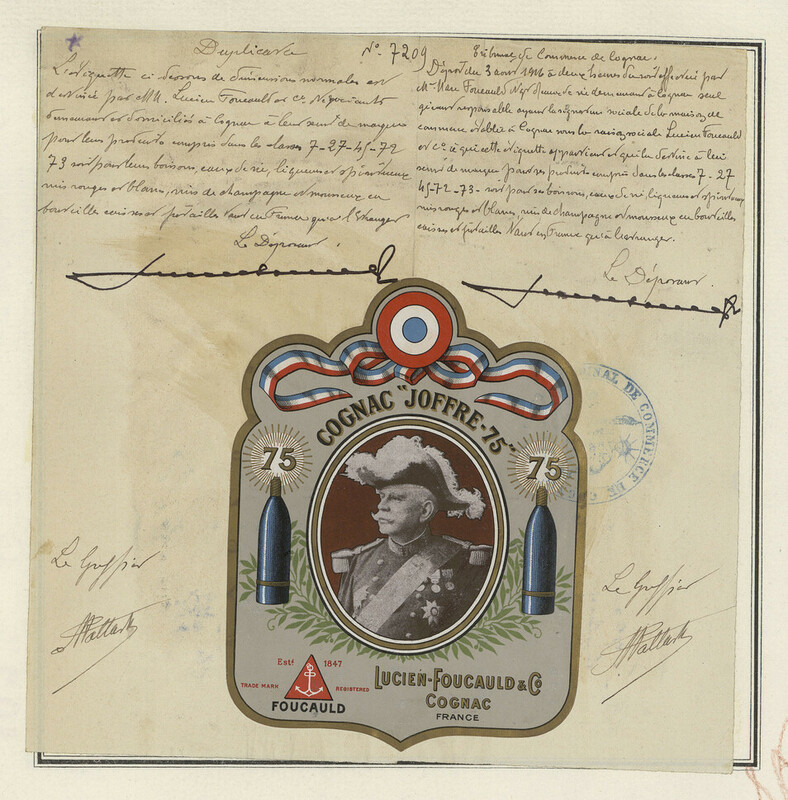 Duplicata
N° 7209
L'étiquette ci dessous de dimensions normales est
destinée par MM. Lucien Foucauld et Cie Négociants
demeurant et domiciliés à Cognac à leur servir de marque
pour leurs produits compris dans les classes 7-27-45-72
73 soit pour leurs boissons, eaux de vie, liqueurs et spiritueux
vins rouges et blancs, vins de champagne et mousseux en
bouteilles caisses et futailles tant en France qu'à l'étranger
Le Déposant
Tribunal de Commerce de Cognac.
Dépôt du 3 à deux heures du soir effectué par
Mr Marc Foucauld Négt d'eaux de vie demeurant à Cognac seul
gérant responsable ayant la signature sociale de la maison de
commerce établie à Cognac sous la raison sociale Lucien Foucauld
et Cie à qui cette étiquette appartient et qui la destine à lui
servir de marque pour ses produits compris dans les classes 7-27
45-72-73- soit pour ses boissons, eaux de vie, liqueurs et spiritueux
vins rouges et blancs, vins de champagne et mousseux en bouteilles
caisses et futailles tant en France qu'à l'étranger.
Le Déposant.
COGNAC "JOFFRE-75"
75
75
TRIBUNAL DE COMMERCE DE COGNAC
Le Greffier
Le Greffier
Estd 1847
TRADE MARK REGISTERED
FOUCAULD
LUCIEN-FOUCAULD & Co
COGNAC
FRANCE